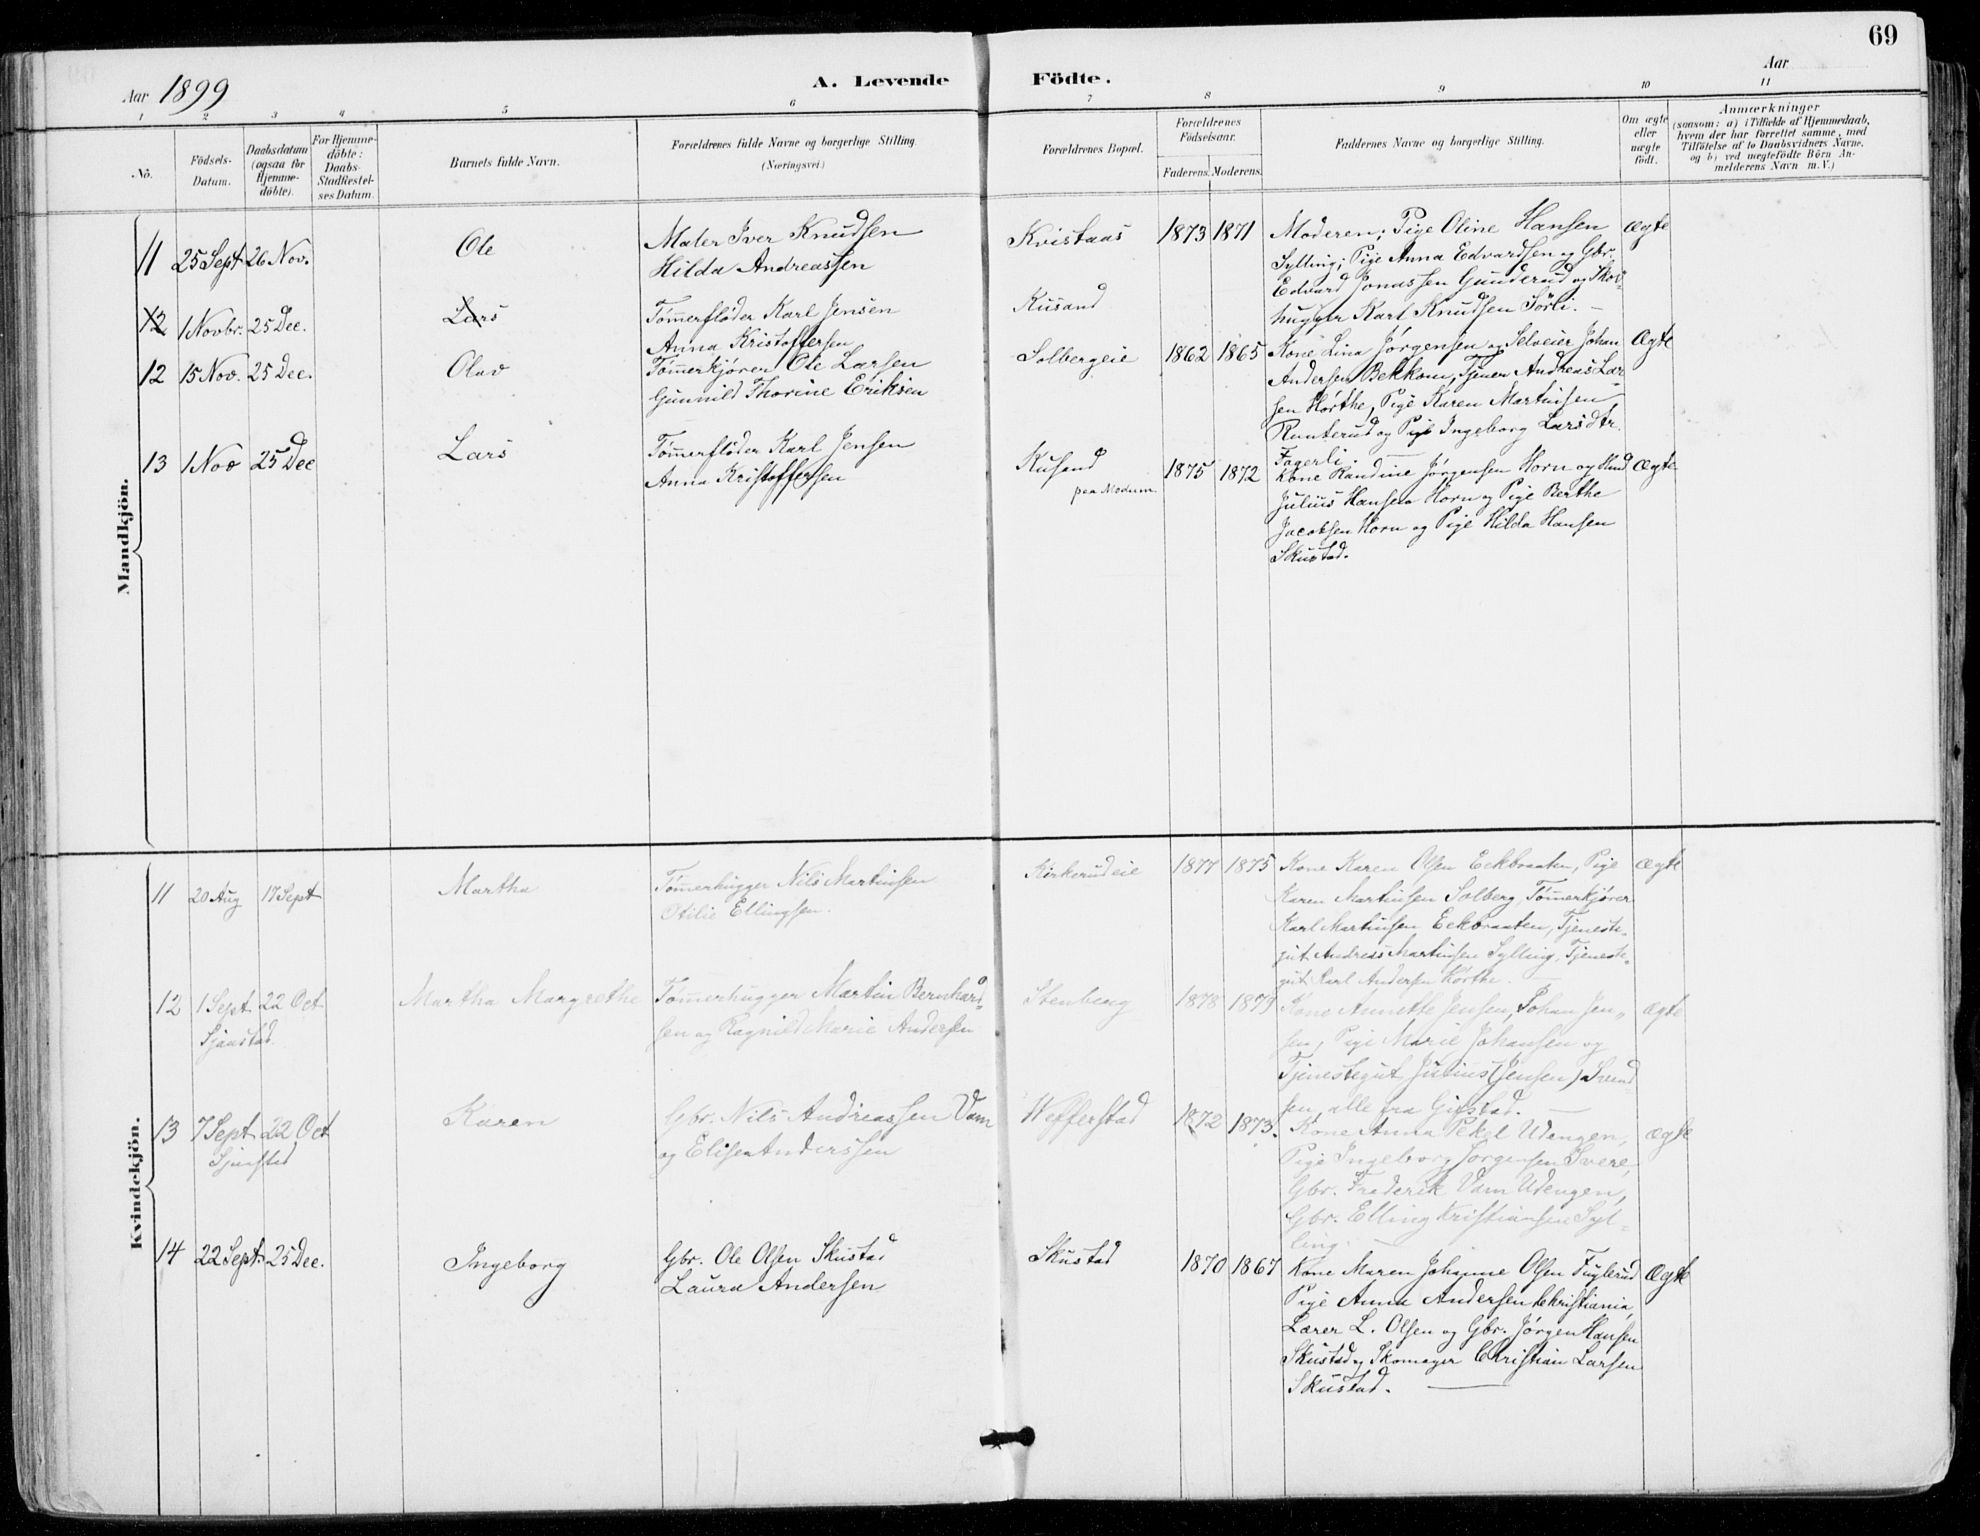 69
Aar 1899
A. Levende Födte.
Aar
1 2 3 4 5 6 7 8 9 10 11
Nö.
Födsels-Datum.
Daabsdatum (ogsaa for Hjemme-döbte).
For Hjemme-döbte: Daabs-Stadfæstel-ses Datum.
Barnets fulde Navn.
Forældrenes fulde Navne og borgerlige Stilling (Næringsvei)
Forældrenes Bopæl.
Forældrenes Födselsaar.
Faderens. Moderens.
Faddernes Navne og borgerlige Stilling.
Om ægte eller uægte födt.
Anmærkninger
(saasom: a) i Tilfælde af Hjemmedaab,
hvem der har forrettet samme, med
Tilföielse af to Daabsvidners Navne,
og b) ved uægtefödte Börn An-
melderens Navn m. V.)
Mandkjön.
11 25 Sept 26 Nov. Ole
Maler Iver Knudsen
Hilda Andreassen
Kvistaas 1873 1871
Moderen; Pige Oline Hansen
Sylling; Pige Anna Edvardsen og Gbr.
Edvard Jonassen Gunderud og Skov-
hugger Karl Knudsen Sörli. –
Ægte
12 1 Novbr. 25 Dec. Lars
Tømerfløder Karl Jensen
Anna Kristoffersen
Kusand
12 15 Nov. 25 Dec. Olav
Tømerkjører Ole Larsen
Gunnild Thorine Eriksen
Solbergeie 1862 1865
Kone Lina Jørgensen og Selveier Johan
Andersen Bekkom, Tjener Andreas Lar-
sen Hørthe, Pige Karen Martinsen
Runterud og Pige Ingeborg Larsdtr.
Fagerli. –
Ægte
13 1 Nov 25 Dec Lars
Tømerfløder Karl Jensen
Anna Kristoffersen
Kusand
paa Modum.
1875 1872
Kone Randine Jørgensen Horn og
Julius Hansen Horn og Pige Berthe
Jacobsen Horn og Pige Hilda Hansen
Skustad.
Ægte
Kvindekjön.
11 20 Aug 17 Sept Martha
Tømerhugger Nils Martinsen
Otilie Ellingsen.
Kirkerudeie 1877 1875
Kone Karen Olsen Eckbraaten, Pige
Karen Martinsen Solberg, Tømerkjører
Karl Martinsen Eckbraaten, Tjeneste-
gut Andreas Martinsen Sylling, Tjeneste-
gut Karl Andersen Hörthe.
Ægte
12 1 Sept 22 Oct Martha Margrethe
Sjaastad.
Tømerhugger Martin Bernhard-
sen og Ragnild Marie Andersen
Stenberg 1878 1879
Kone Annette Jensen, Johan Jen-
sen, Pige Marie Johansen og
Tjenestegut Julius (Jensen) Svend
sen, alle fra Gifstad. –
Ægte
13 7 Sept 22 Oct Karen
Gbr. Nils Andreassen Vam
og Elise Anderssen
Wefferstad 1872 1873.
Kone Anna Udengen,
Pige Ingeborg Jørgensen Svere,
Gbr. Frederik Vam Udengen,
Gbr. Elling Kristiansen Syl-
ling.
Ægte
14 22 Sept. 25 Dec. Ingeborg
Gbr. Ole Olsen Skustad
Laura Andersen
Skustad 1870 1867
Kone Maren Johanne Olsen Fuglerud
Pige Anna Andersen, Kristiania,
Lærer L. Olsen og Gbr. Jørgen Hansen
Skustad og Skomager Christian Larsen
Skustad. –
Ægte